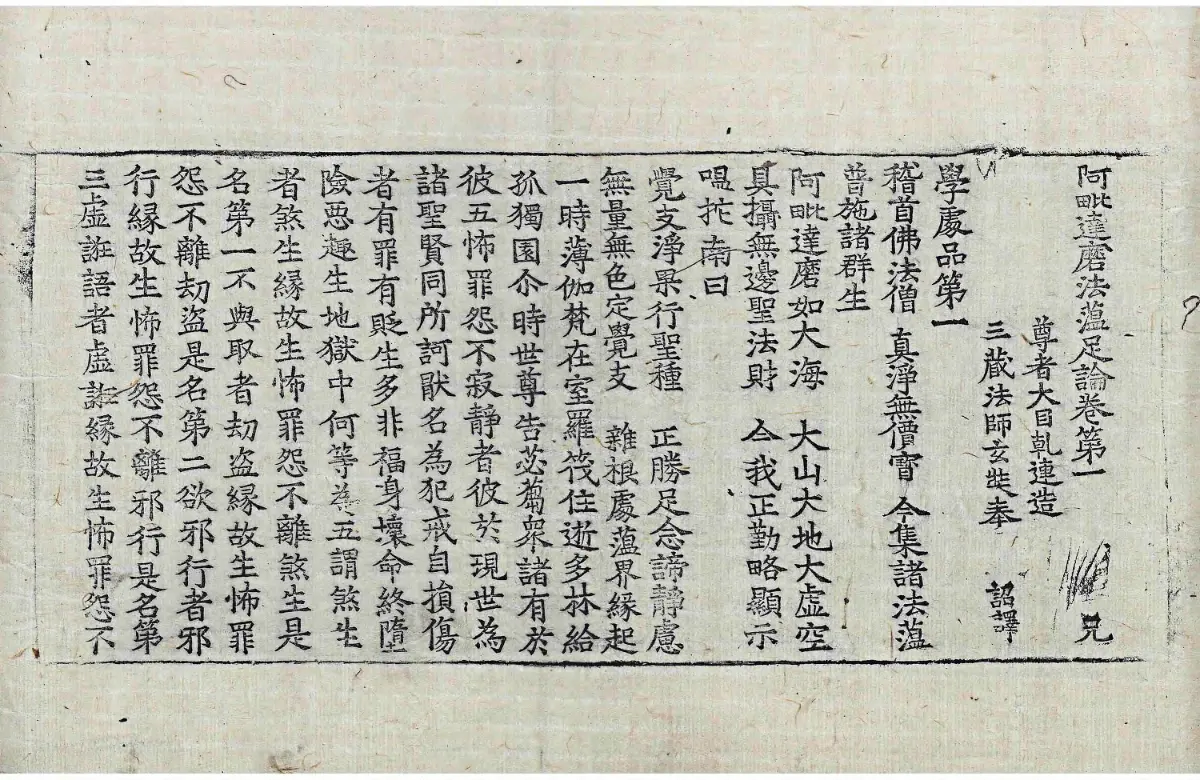 阿毗達磨法蕴足論卷第一 兄
尊者大目乹連造
三藏法師玄奘奉 詔譯
學處品第一
稽首佛法僧 真淨無價寶 今集諸法蕴
普施諸群生
阿毗達磨如大海 大山大地大虛空
具攝無邊聖法財 今我正勤略顯示
嗢拕南曰
覺支淨果行聖種 正勝足念諦靜慮
無量無色定覺支 雜根處蕴界緣起
一時薄伽梵在室羅筏住逝多林給
孤獨園尒時世尊告苾蒭衆諸有於
彼五怖罪怨不寂靜者彼於現世為
諸聖賢同所訶猒名為犯戒自損傷
者有罪有貶生多非福身壞命終墮
險惡趣生地獄中何等為五謂煞生
者煞生緣故生怖罪怨不離煞生是
名第一不與取者劫盜緣故生怖罪
怨不離劫盜是名第二欲邪行者邪
行緣故生怖罪怨不離邪行是名第
三虛誑語者虛誑緣故生怖罪怨不